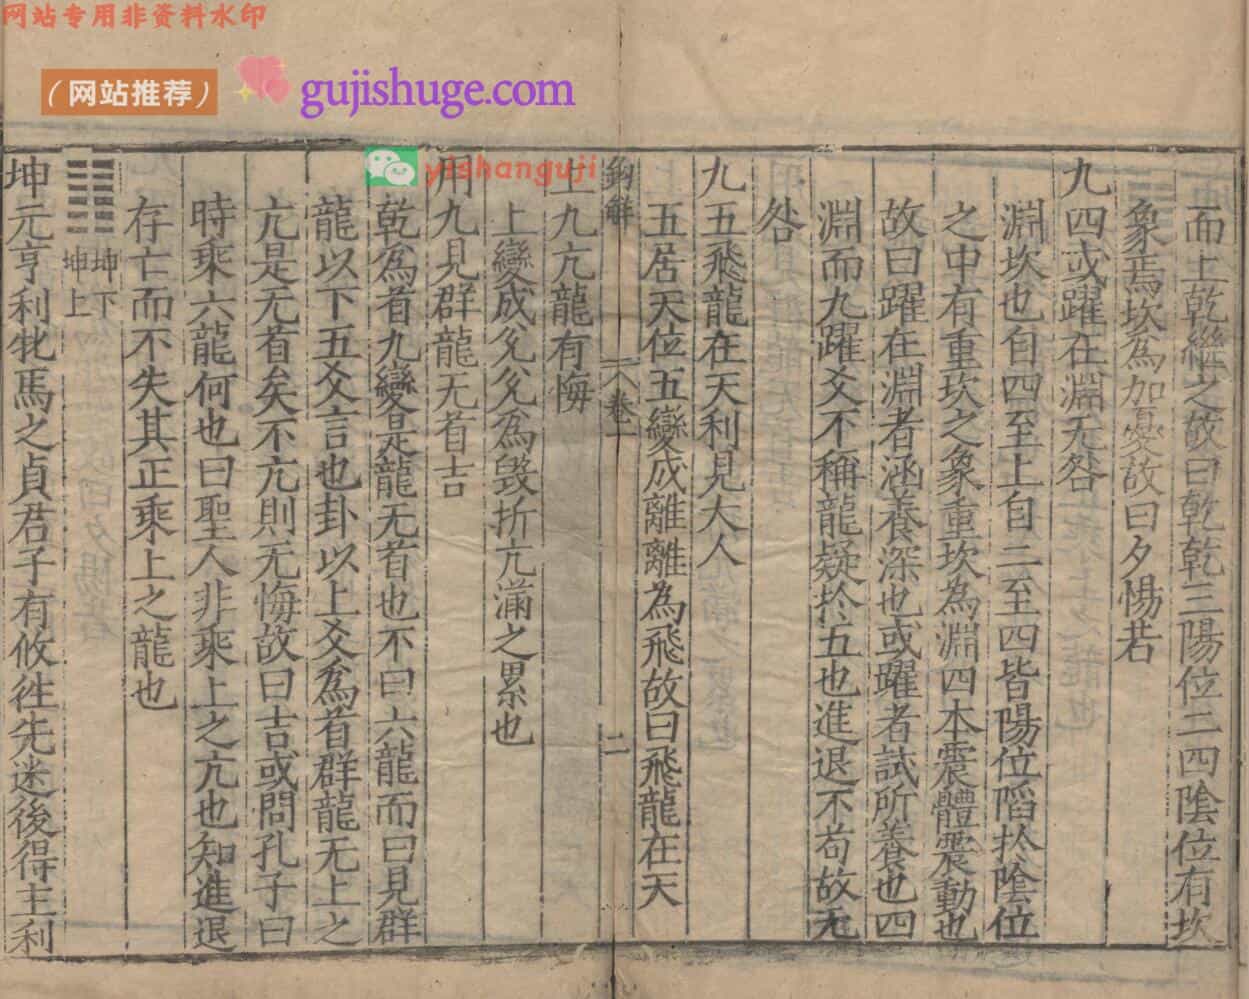 网站专用非资料水印
（网站推荐）
gujishuge.com
yishanguji
而上乾繼之故曰乾乾三陽位二四陰位有坎
象焉坎為加憂故曰夕惕若
九四或躍在淵无咎
淵坎也自四至上自二至四皆陽位陷扵陰位
之中有重坎之象重坎為淵四本震體震動也
故曰躍在淵者涵養深也或躍者試所養也四
淵而九躍爻不稱龍疑扵五也進退不苟故无
咎
九五飛龍在天利見大人
五居天位五變成離離為飛故曰飛龍在天
卷一
二
上九亢龍有悔
上變成兊兊為毀折亢滿之累也
用九見群龍无首吉
乾為首九變是龍无首也不曰六龍而曰見群
龍以下五爻言也卦以上爻為首群龍无上之
亢是无首矣不亢則无悔故曰吉或問孔子曰
時乘六龍何也曰聖人非乘上之亢也知進退
存亡而不失其正乘上之龍也
坤下
坤上
坤元亨利牝馬之貞君子有攸徃先迷後得主利